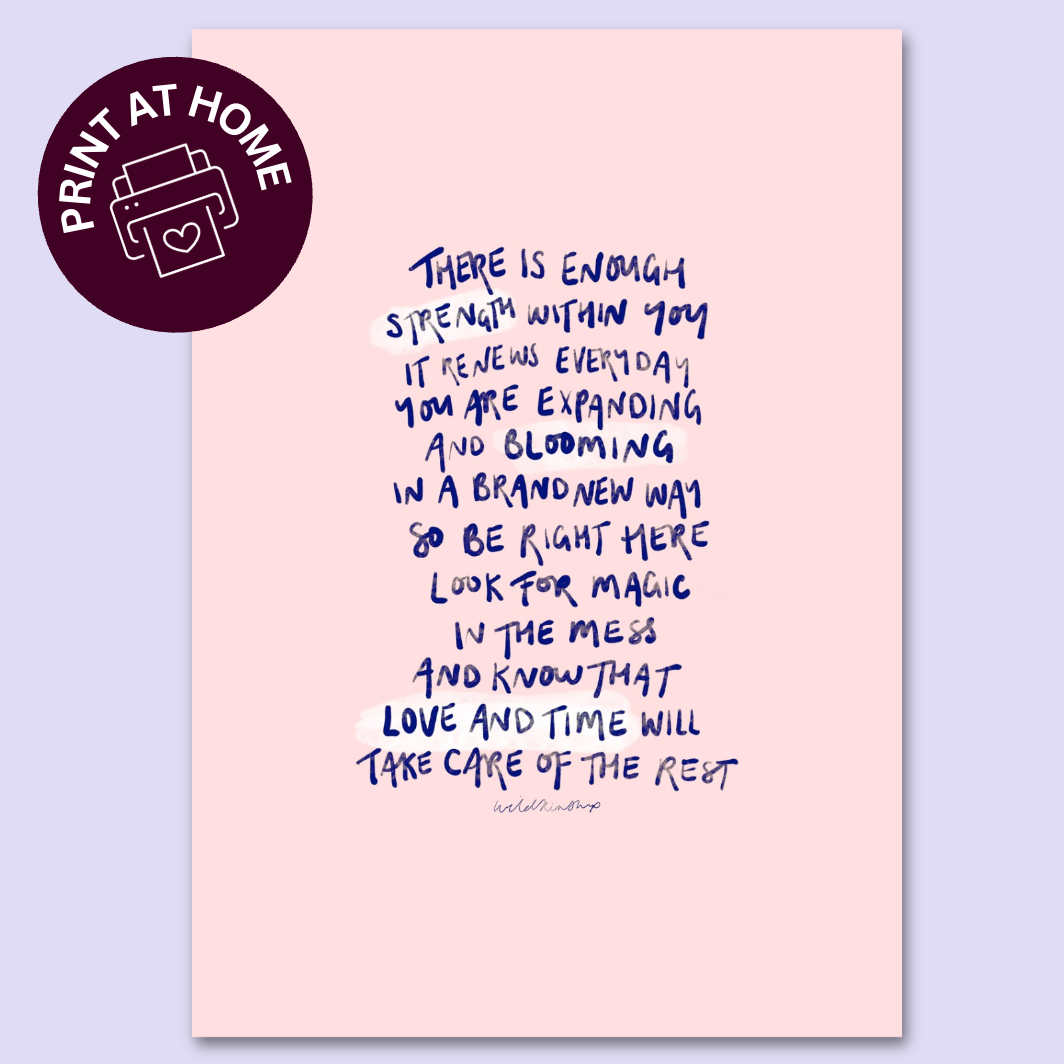 PRINT AT HOME
THERE IS ENOUGH
STRENGTH WITHIN YOU
IT RENEWS EVERYDAY
YOU ARE EXPANDING
AND BLOOMING
IN A BRAND NEW WAY
SO BE RIGHT HERE
LOOK FOR MAGIC
IN THE MESS
AND KNOW THAT
LOVE AND TIME WILL
TAKE CARE OF THE REST
wildkinship